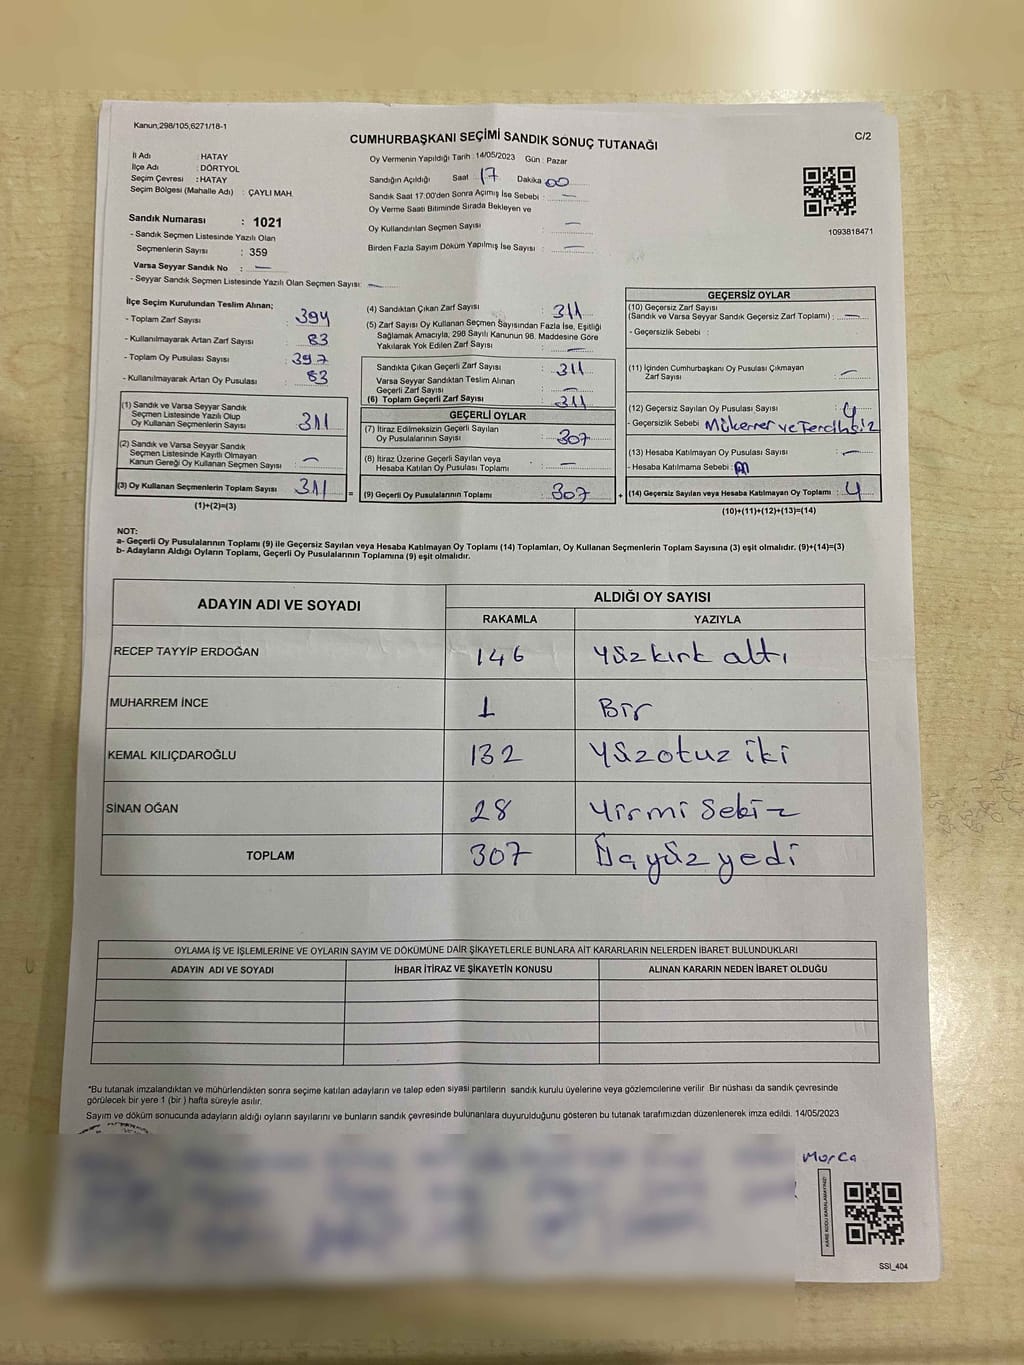 Kanun,298/105,6271/18-1
CUMHURBAŞKANI SEÇİMİ SANDIK SONUÇ TUTANAĞI
C/2
İl Adı : HATAY
İlçe Adı : DÖRTYOL
Seçim Çevresi : HATAY
Seçim Bölgesi (Mahalle Adı) : ÇAYLI MAH.
Sandık Numarası : 1021
- Sandık Seçmen Listesinde Yazılı Olan
Seçmenlerin Sayısı : 359
Varsa Seyyar Sandık No : —
- Seyyar Sandık Seçmen Listesinde Yazılı Olan Seçmen Sayısı: —
Oy Vermenin Yapıldığı Tarih : 14/05/2023 Gün : Pazar
Sandığın Açıldığı Saat 17 Dakika 00
Sandık Saat 17:00'den Sonra Açımış İse Sebebi : —
Oy Verme Saati Bitiminde Sırada Bekleyen ve
Oy Kullandırılan Seçmen Sayısı —
Birden Fazla Sayım Döküm Yapılmış İse Sayısı : —
1093818471
İlçe Seçim Kurulundan Teslim Alınan;
- Toplam Zarf Sayısı : 394
- Kullanılmayarak Artan Zarf Sayısı : 83
- Toplam Oy Pusulası Sayısı : 397
- Kullanılmayarak Artan Oy Pusulası : 83
(1) Sandık ve Varsa Seyyar Sandık
Seçmen Listesinde Yazılı Olup
Oy Kullanan Seçmenlerin Sayısı : 311
(2) Sandık ve Varsa Seyyar Sandık
Seçmen Listesinde Kayıtlı Olmayan
Kanun Gereği Oy Kullanan Seçmen Sayısı : —
(3) Oy Kullanan Seçmenlerin Toplam Sayısı : 311
(1)+(2)=(3)
=
(4) Sandıktan Çıkan Zarf Sayısı : 311
(5) Zarf Sayısı Oy Kullanan Seçmen Sayısından Fazla İse, Eşitliği
Sağlamak Amacıyla, 298 Sayılı Kanunun 98. Maddesine Göre
Yakılarak Yok Edilen Zarf Sayısı : —
Sandıkta Çıkan Geçerli Zarf Sayısı : 311
Varsa Seyyar Sandıktan Teslim Alınan
Geçerli Zarf Sayısı : —
(6) Toplam Geçerli Zarf Sayısı : 311
GEÇERLİ OYLAR
(7) İtiraz Edilmeksizin Geçerli Sayılan
Oy Pusulalarının Sayısı : 307
(8) İtiraz Üzerine Geçerli Sayılan veya
Hesaba Katılan Oy Pusulası Toplamı : —
(9) Geçerli Oy Pusulalarının Toplamı : 307
+
GEÇERSİZ OYLAR
(10) Geçersiz Zarf Sayısı
(Sandık ve Varsa Seyyar Sandık Geçersiz Zarf Toplamı) : —
- Geçersizlik Sebebi :
(11) İçinden Cumhurbaşkanı Oy Pusulası Çıkmayan
Zarf Sayısı : —
(12) Geçersiz Sayılan Oy Pusulası Sayısı : 4
- Geçersizlik Sebebi : Mükerrer ve Tercihsiz
(13) Hesaba Katılmayan Oy Pusulası Sayısı : —
- Hesaba Katılmama Sebebi :
(14) Geçersiz Sayılan veya Hesaba Katılmayan Oy Toplamı : 4
(10)+(11)+(12)+(13)=(14)
NOT:
a- Geçerli Oy Pusulalarının Toplamı (9) ile Geçersiz Sayılan veya Hesaba Katılmayan Oy Toplamı (14) Toplamları, Oy Kullanan Seçmenlerin Toplam Sayısına (3) eşit olmalıdır. (9)+(14)=(3)
b- Adayların Aldığı Oyların Toplamı, Geçerli Oy Pusulalarının Toplamına (9) eşit olmalıdır.
ADAYIN ADI VE SOYADI
ALDIĞI OY SAYISI
RAKAMLA YAZIYLA
RECEP TAYYİP ERDOĞAN 146 Yüzkırk altı
MUHARREM İNCE 1 Bir
KEMAL KILIÇDAROĞLU 132 Yüzotuz iki
SİNAN OĞAN 28 Yirmi Sekiz
TOPLAM 307 Üçyüz yedi
OYLAMA İŞ VE İŞLEMLERİNE VE OYLARIN SAYIM VE DÖKÜMÜNE DAİR ŞİKAYETLERLE BUNLARA AİT KARARLARIN NELERDEN İBARET BULUNDUKLARI
ADAYIN ADI VE SOYADI İHBAR İTİRAZ VE ŞİKAYETİN KONUSU ALINAN KARARIN NEDEN İBARET OLDUĞU
*Bu tutanak imzalandıktan ve mühürlendikten sonra seçime katılan adayların ve talep eden siyasi partilerin sandık kurulu üyelerine veya gözlemcilerine verilir .Bir nüshası da sandık çevresinde
görülecek bir yere 1 (bir ) hafta süreyle asılır.
Sayım ve döküm sonucunda adayların aldığı oyların sayılarını ve bunların sandık çevresinde bulunanlara duyurulduğunu gösteren bu tutanak tarafımızdan düzenlenerek imza edildi. 14/05/2023
KARE KODU KARALAMAYINIZ!
SSİ_404